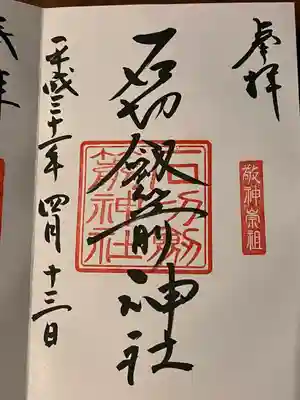 奉拝
敬神崇祖
石切劔箭神社
石切劔箭神社
平成三十一年四月十三日